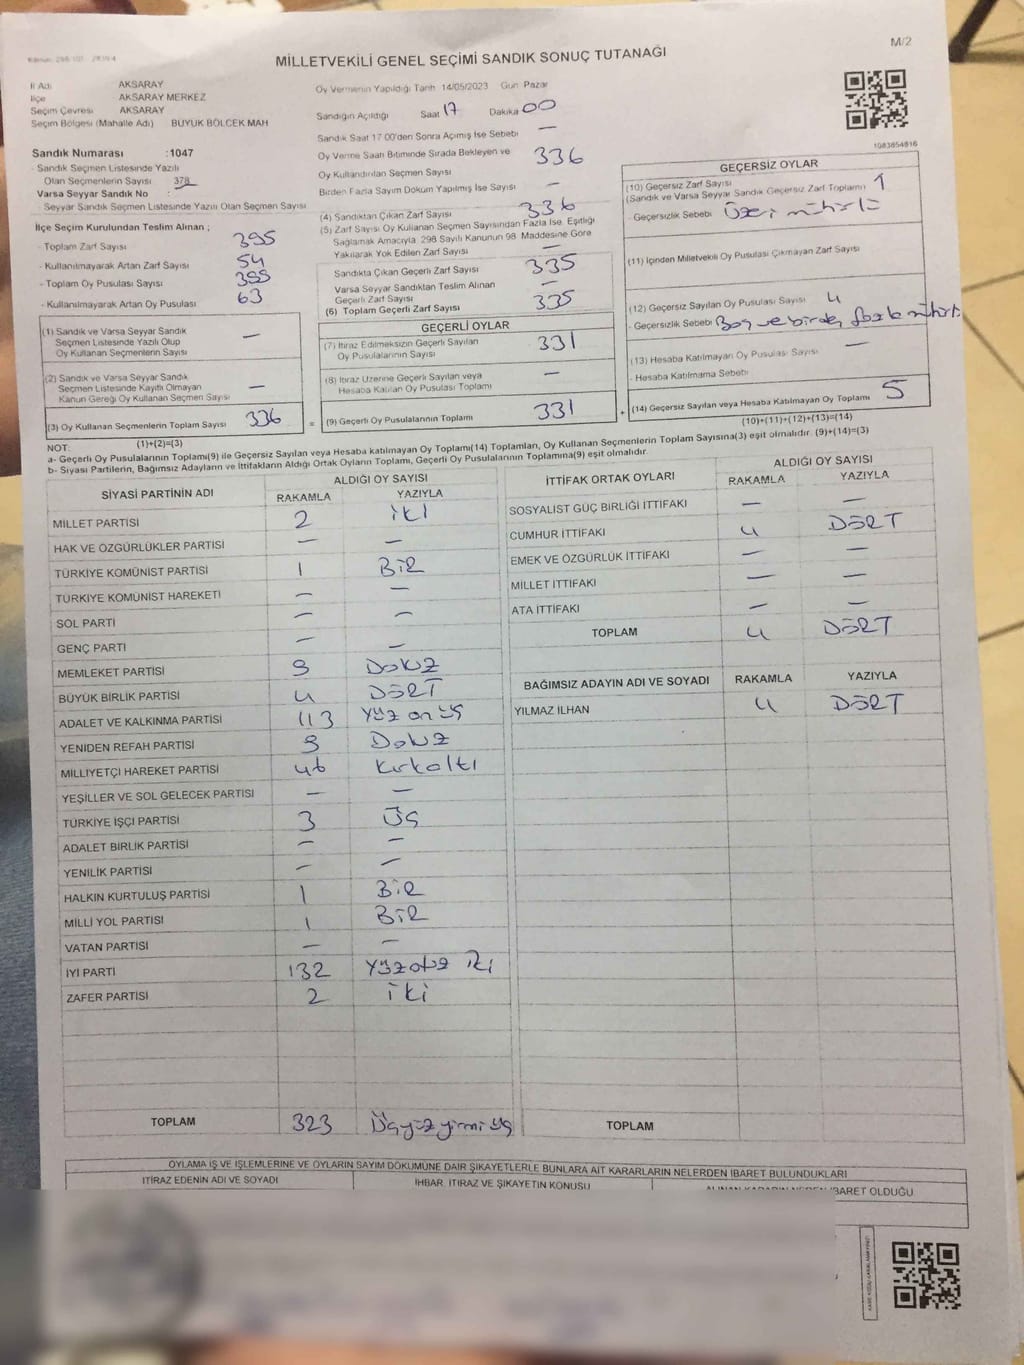 M/2
MİLLETVEKİLİ GENEL SEÇİMİ SANDIK SONUÇ TUTANAĞI
İl Adı AKSARAY
İlçe AKSARAY MERKEZ
Seçim Çevresi AKSARAY
Seçim Bölgesi (Mahalle Adı) BÜYÜK BÖLCEK MAH
Sandık Numarası :1047
- Sandık Seçmen Listesinde Yazılı
Olan Seçmenlerin Sayısı 378
Varsa Seyyar Sandık No :
- Seyyar Sandık Seçmen Listesinde Yazılı Olan Seçmen Sayısı
İlçe Seçim Kurulundan Teslim Alınan ;
- Toplam Zarf Sayısı 395
- Kullanılmayarak Artan Zarf Sayısı 54
- Toplam Oy Pusulası Sayısı 395
- Kullanılmayarak Artan Oy Pusulası 63
(1) Sandık ve Varsa Seyyar Sandık
Seçmen Listesinde Yazılı Olup
Oy Kullanan Seçmenlerin Sayısı —
(2) Sandık ve Varsa Seyyar Sandık
Seçmen Listesinde Kayıtlı Olmayan
Kanun Gereği Oy Kullanan Seçmen Sayısı —
(3) Oy Kullanan Seçmenlerin Toplam Sayısı 336
(1)+(2)=(3)
Oy Vermenin Yapıldığı Tarih 14/05/2023 Gün Pazar
Sandığın Açıldığı Saat 17 Dakika 00
Sandık Saat 17 00'den Sonra Açımış İse Sebebi —
Oy Verme Saati Bitiminde Sırada Bekleyen ve
Oy Kullandırılan Seçmen Sayısı 336
Birden Fazla Sayım Döküm Yapılmış İse Sayısı —
(4) Sandıktan Çıkan Zarf Sayısı 336
(5) Zarf Sayısı Oy Kullanan Seçmen Sayısından Fazla İse, Eşitliği
Sağlamak Amacıyla 298 Sayılı Kanunun 98 Maddesine Göre
Yakılarak Yok Edilen Zarf Sayısı —
Sandıkta Çıkan Geçerli Zarf Sayısı 335
Varsa Seyyar Sandıktan Teslim Alınan
Geçerli Zarf Sayısı —
(6) Toplam Geçerli Zarf Sayısı 335
GEÇERLİ OYLAR
(7) İtiraz Edilmeksizin Geçerli Sayılan
Oy Pusulalarının Sayısı 331
(8) İtiraz Üzerine Geçerli Sayılan veya
Hesaba Katılan Oy Pusulası Toplamı —
= (9) Geçerli Oy Pusulalarının Toplamı 331
1083854816
GEÇERSİZ OYLAR
(10) Geçersiz Zarf Sayısı
(Sandık ve Varsa Seyyar Sandık Geçersiz Zarf Toplamı) 1
- Geçersizlik Sebebi Üzeri mühürlü
(11) İçinden Milletvekili Oy Pusulası Çıkmayan Zarf Sayısı
(12) Geçersiz Sayılan Oy Pusulası Sayısı 4
- Geçersizlik Sebebi Boş ve birden fazla mühürlü
(13) Hesaba Katılmayan Oy Pusulası Sayısı —
- Hesaba Katılmama Sebebi
+ (14) Geçersiz Sayılan veya Hesaba Katılmayan Oy Toplamı 5
(10)+(11)+(12)+(13)=(14)
NOT:
a- Geçerli Oy Pusulalarının Toplamı(9) ile Geçersiz Sayılan veya Hesaba katılmayan Oy Toplamı(14) Toplamları, Oy Kullanan Seçmenlerin Toplam Sayısına(3) eşit olmalıdır. (9)+(14)=(3)
b- Siyasi Partilerin, Bağımsız Adayların ve İttifakların Aldığı Ortak Oyların Toplamı, Geçerli Oy Pusulalarının Toplamına(9) eşit olmalıdır
SİYASİ PARTİNİN ADI ALDIĞI OY SAYISI
RAKAMLA YAZIYLA
MİLLET PARTİSİ 2 iki
HAK VE ÖZGÜRLÜKLER PARTİSİ — —
TÜRKİYE KOMÜNİST PARTİSİ 1 BİR
TÜRKİYE KOMÜNİST HAREKETİ — —
SOL PARTİ — —
GENÇ PARTİ — —
MEMLEKET PARTİSİ 9 Dokuz
BÜYÜK BİRLİK PARTİSİ 4 DÖRT
ADALET VE KALKINMA PARTİSİ 113 Yüz on üç
YENİDEN REFAH PARTİSİ 9 Dokuz
MİLLİYETÇİ HAREKET PARTİSİ 46 kırkaltı
YEŞİLLER VE SOL GELECEK PARTİSİ — —
TÜRKİYE İŞÇİ PARTİSİ 3 Üç
ADALET BİRLİK PARTİSİ — —
YENİLİK PARTİSİ — —
HALKIN KURTULUŞ PARTİSİ 1 BİR
MİLLİ YOL PARTİSİ 1 BİR
VATAN PARTİSİ — —
İYİ PARTİ 132 Yüz otuz iki
ZAFER PARTİSİ 2 iki
TOPLAM 323 Üçyüz yirmi üç
İTTİFAK ORTAK OYLARI ALDIĞI OY SAYISI
RAKAMLA YAZIYLA
SOSYALİST GÜÇ BİRLİĞİ İTTİFAKI — —
CUMHUR İTTİFAKI 4 DÖRT
EMEK VE ÖZGÜRLÜK İTTİFAKI — —
MİLLET İTTİFAKI — —
ATA İTTİFAKI — —
TOPLAM 4 DÖRT
BAĞIMSIZ ADAYIN ADI VE SOYADI RAKAMLA YAZIYLA
YILMAZ İLHAN 4 DÖRT
TOPLAM
OYLAMA İŞ VE İŞLEMLERİNE VE OYLARIN SAYIM DÖKÜMÜNE DAİR ŞİKAYETLERLE BUNLARA AİT KARARLARIN NELERDEN İBARET BULUNDUKLARI
İTİRAZ EDENİN ADI VE SOYADI İHBAR, İTİRAZ VE ŞİKAYETİN KONUSU İBARET OLDUĞU